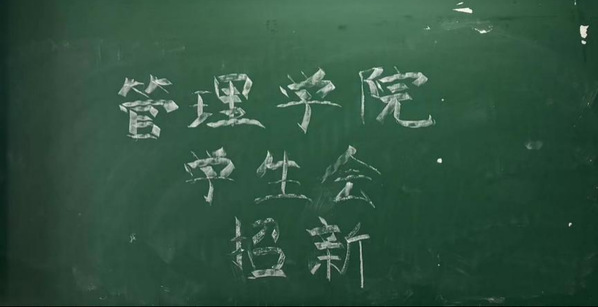 管理学院
学生会
招新